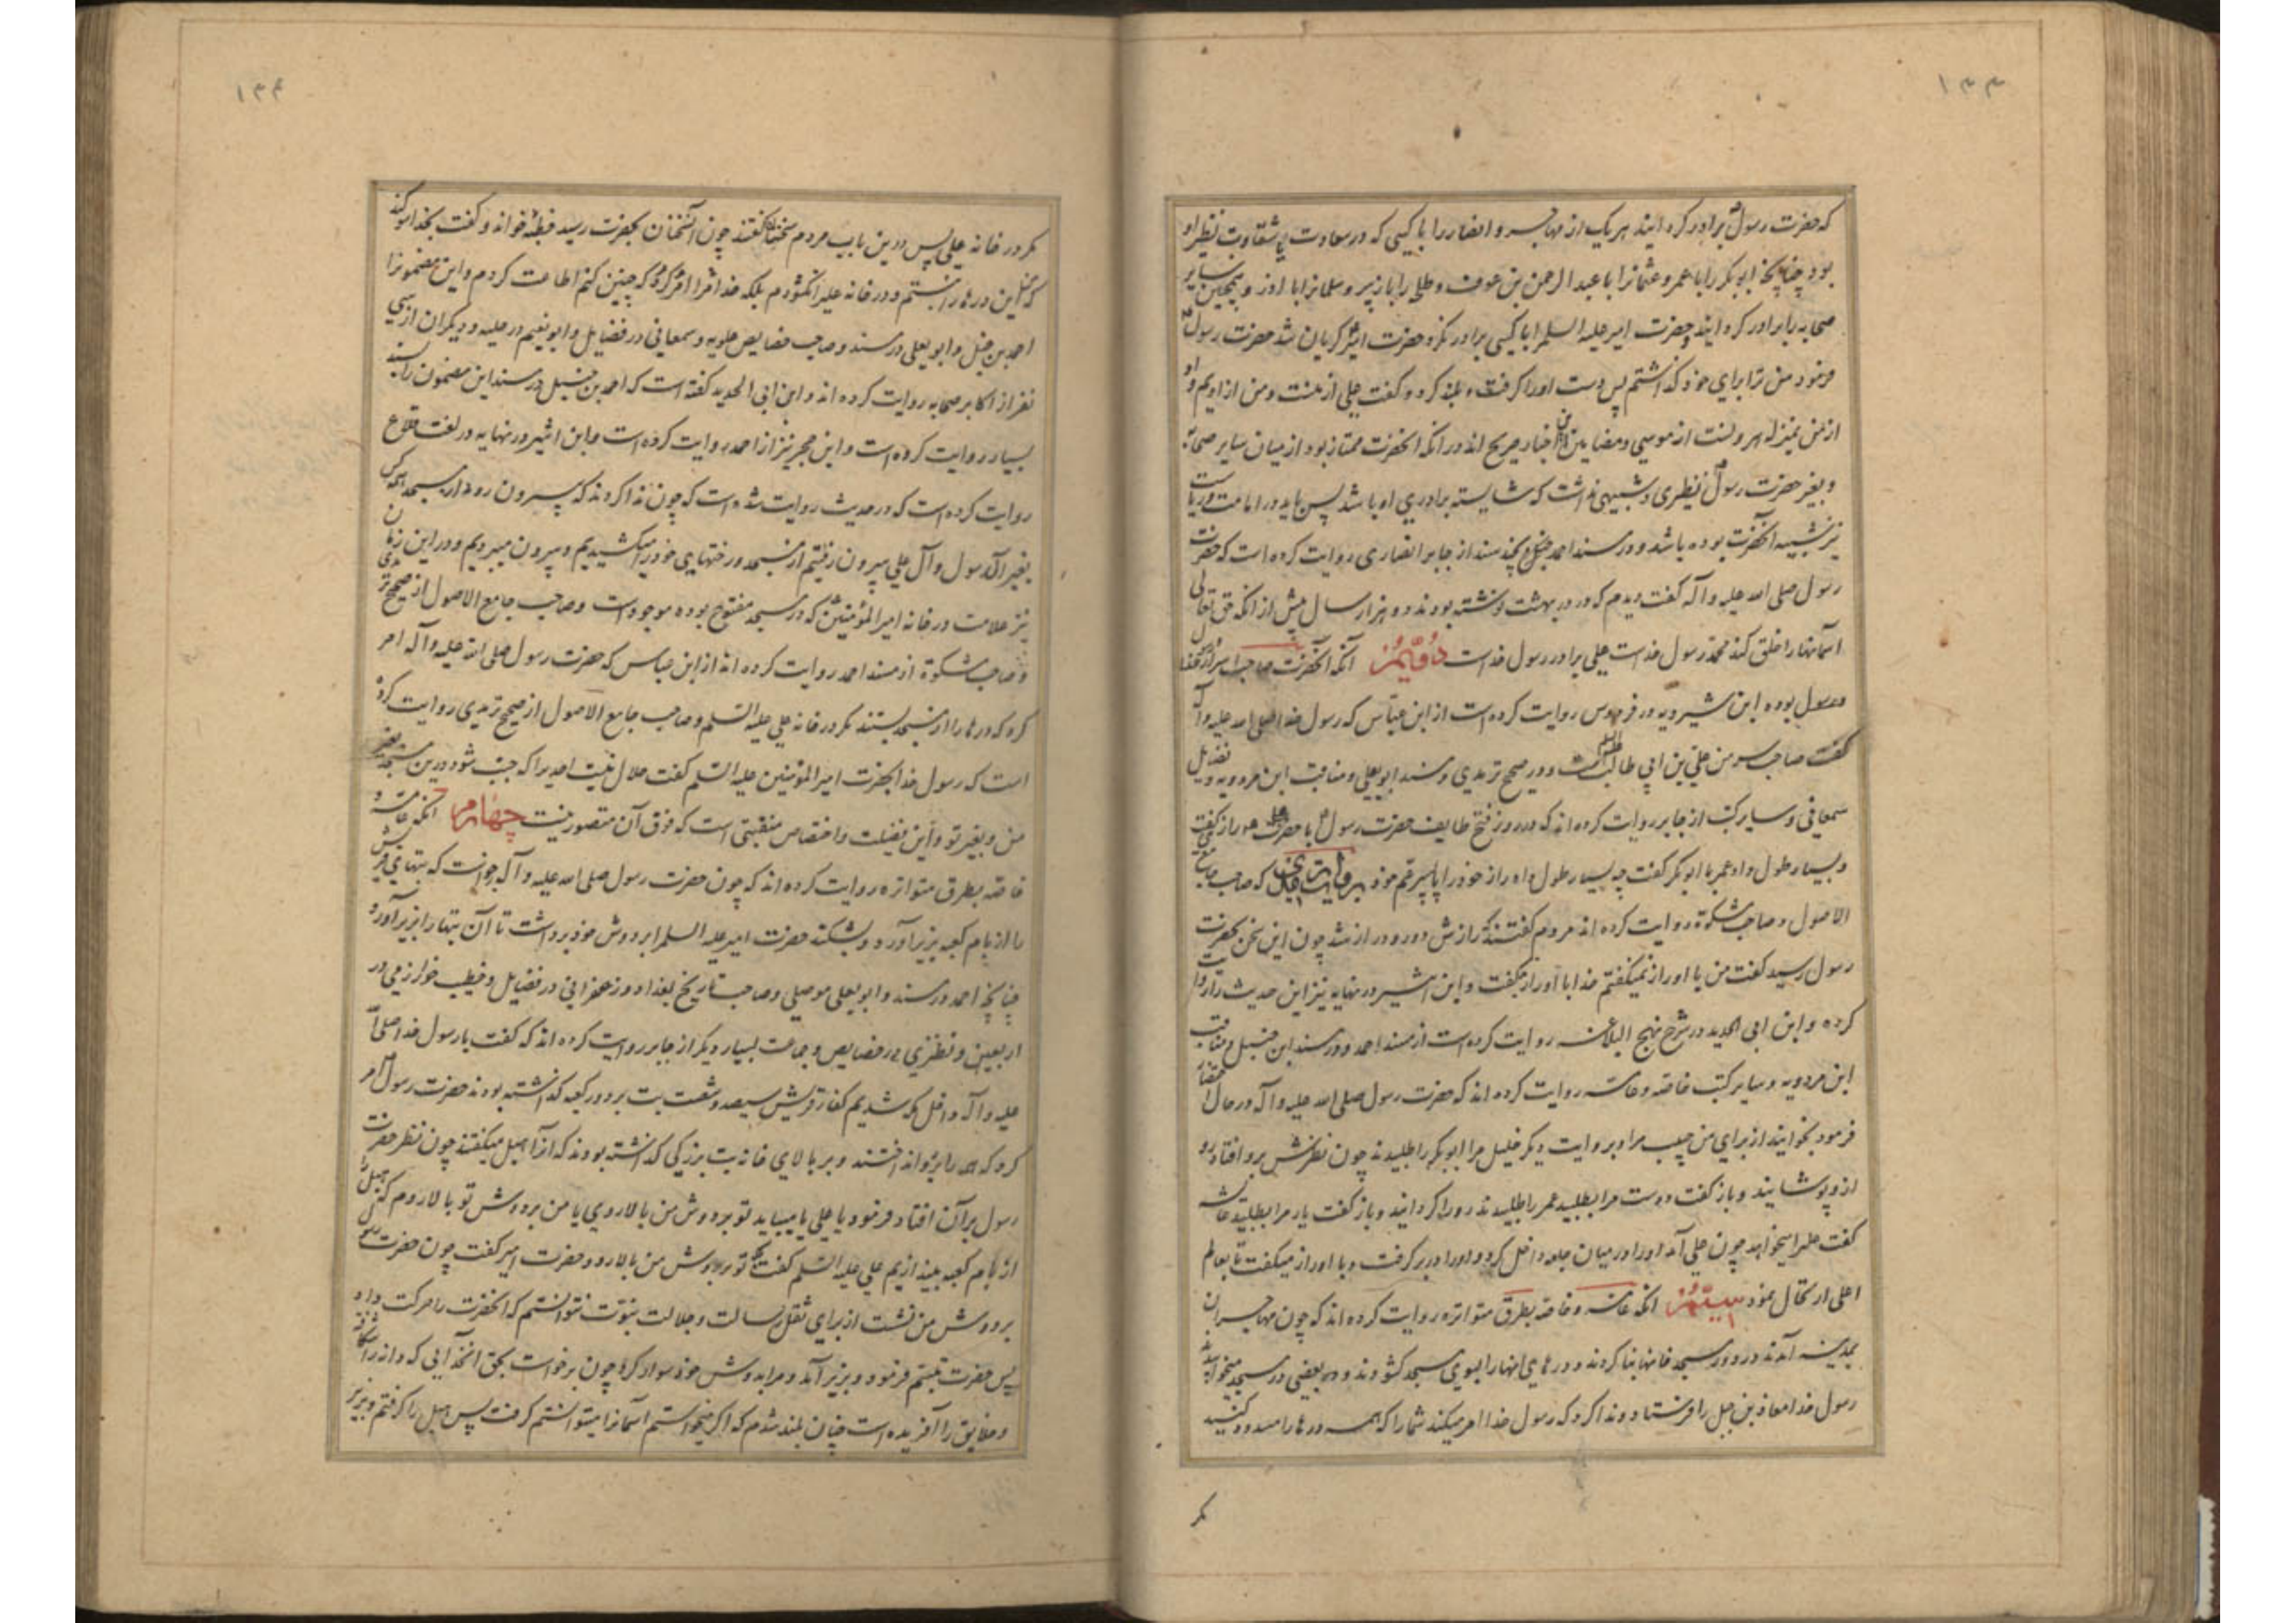 ۱۳۳
که حضرت رسول برادر کرد ایند هر یک از مهاجر و انصار را با کسی که در سعادت یا شقاوت نظیر او
بود چنانچه ابو بکر را با عمر و عثمانرا با عبد الرحمن بن عوف و طلحه را با زبیر و سلمانرا با ابوذر و همچنین سایر
صحابه را برادر کرد ایند و حضرت امیر علیه السلم را با کسی برادر نکرد حضرت امیر گریان شد حضرت رسول
فرمود من ترا برای خود گذاشتم پس دست او را گرفت و بلند کرد و گفت علی از منست و من از اویم و او
از من بمنزله هرونست از موسی و مضامین این اخبار صریح اند در انکه انحضرت ممتاز بود از میان سایر صحابه
و بغیر حضرت رسول نظیری و شبیهی نداشت که شایسته برادری او باشد پس باید در امامت و ریاست
نیز شبیه آنحضرت بوده باشد و در مسند احمد حنبل بچند سند از جابر انصاری روایت کرده است که حضرت
رسول صلی الله علیه و آله گفت دیدم که در در بهشت نوشته بودند دو هزار سال پیش از انکه حق تعالی
اسمانها را خلق کند محمد رسول خداست علی برادر رسول خداست دویم انکه آنحضرت صاحب اسرار خدا
و رسول بوده ابن شیرویه در فردوس روایت کرده است از ابن عباس که رسول خدا صلی الله علیه و آله
گفت صاحب سر من علی بن ابی طالب است و در صحیح ترمدی و مسند ابویعلی و مناقب ابن مردویه و فضایل
سمعانی و سایر کتب از جابر روایت کرده اند که در روز فتح طایف حضرت رسول با حضرت علی راز گفت
و بسیار طول داد عمر با ابو بکر گفت چه بسیار طول داد راز خود را با پسر عم خود بروایت که صاحب جامع
الاصول و صاحب مشکوة روایت کرده اند مردم گفتند که رازش دور و دراز شد چون این سخن بحضرت
رسول رسید گفت من با او راز نمیگفتم خدا با او راز گفت و ابن اثیر در نهایه نیز این حدیث را روایت
کرده و ابن ابی الحدید در شرح نهج البلاغه روایت کرده است از مسند احمد و در مسند ابن حنبل و مناقب
ابن مردویه و سایر کتب خاصه و عامه روایت کرده اند که حضرت رسول صلی الله علیه و آله در حال احتضار
فرمود بخوانید از برای من حبیب مرا و بروایت دیگر خلیل مرا ابو بکر را طلبیدند چون نظرش برو افتاد رو
از و پوشانید و باز گفت دوست مرا بطلبید عمر را طلبیدند رو را کردانید و باز گفت یار مرا بطلبید عایشه
گفت علی را میخواهد چون علی آمد او را در میان جامه داخل کرد و او را در بر گرفت و با او راز میگفت تا بعالم
اعلی ارتحال نمود سیم انکه عامه و خاصه بطرق متواتره روایت کرده اند که چون مهاجران
بمدینه آمدند در دور مسجد خانها بنا کردند و درهای انها را بسوی مسجد کشودند و بعضی در مسجد میخوابیدند
رسول خدا معاذ بن جبل را فرستاد و ندا کرد که رسول خدا امر میکند شما را که همه درها را مسدود کنید
مگر
۱۳۴
مگر در خانه علی پس درین باب مردم سخنان گفتند چون آنسخنان بحضرت رسید خطبه خواند و گفت بخدا سوگند
که من این درها را نبستم و در خانه علی را نکشودم بلکه خدا مرا امر کرد که چنین کنم اطاعت کردم و این مضمونرا
احمد بن حنبل و ابو یعلی در مسند و صاحب خصایص علویه و سمعانی در فضایل و ابو نعیم در حلیه و دیگران از سی
نفر از اکابر صحابه روایت کرده اند و ابن ابی الحدید گفته است که احمد بن حنبل در مسند این مضمون را بسند
بسیار روایت کرده است و ابن حجر نیز از احمد روایت کرده است و ابن اثیر در نهایه در لغت قلاع
روایت کرده است که در حدیث روایت شده است که چون ندا کردند که بیرون رود از مسجد هر کس
بغیر آل رسول و آل علی بیرون رفتیم از مسجد و رختهای خود را میکشیدیم و بیرون میبردیم و در این زمان
نیز علامت در خانه امیر المؤمنین که در مسجد مفتوح بوده موجود است و صاحب جامع الاصول از صحیح ترمدی
و صاحب مشکوة از مسند احمد روایت کرده اند از ابن عباس که حضرت رسول صلی الله علیه و آله امر
کرد که درها را از مسجد ببستند مگر در خانه علی علیه السلم و صاحب جامع الاصول از صحیح ترمدی روایت کرده
است که رسول خدا بحضرت امیر المؤمنین علیه السلم گفت حلال نیست احدیرا که جنب شود درین مسجد بغیر
من و بغیر تو و این فضیلت و اختصاص منقبتی است که فوق آن متصور نیست چهارم انکه عامه و
خاصه بطرق متواتره روایت کرده اند که چون حضرت رسول صلی الله علیه و آله خواست که بتهای قریش
را از بام کعبه بزیر آورد و بشکند حضرت امیر علیه السلم را بر دوش خود برداشت تا آن بتها را بزیر آورد
چنانچه احمد در مسند و ابو یعلی موصلی و صاحب تاریخ بغداد و زعفرانی در فضایل و خطیب خوارزمی در
اربعین و نطنزی در خصایص و جماعت بسیار دیگر از جابر روایت کرده اند که گفت با رسول خدا صلی الله
علیه و آله داخل مکه شدیم کفار قریش سیصد و شصت بت بر دور کعبه گذاشته بودند حضرت رسول امر
کرد که همه را برو انداختند و بر بالای خانه بت بزرگی گذاشته بودند که آنرا هبل میگفتند چون نظر حضرت
رسول بر آن افتاد فرمود یا علی یا میباید تو بر دوش من بالا روی یا من بر دوش تو بالا روم که هبل را
از بام کعبه بیندازیم علی علیه السلم گفت تو بر دوش من بالا رو و حضرت امیر گفت چون حضرت رسول
بر دوش من نشست از برای ثقل رسالت و جلالت نبوت نتوانستم که انحضرت را حرکت داد
پس حضرت تبسم فرمود و بزیر آمد و مرا بدوش خود سوار کرد چون برخواست بحق انخدائی که دانه را شکافته
و خلایق را آفریده است چنان بلند شدم که اگر میخواستم اسمانرا میتوانستم گرفت پس هبل را گرفتم و بزیر